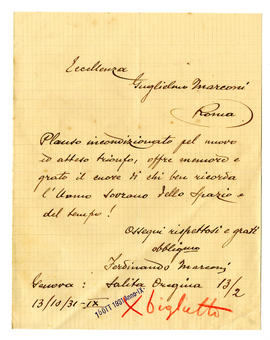 Eccellenza
Guglielmo Marconi
Roma
Plauso incondizionato pel nuovo
ed atteso trionfo, offre memore e
grato il cuore di chi ben ricorda
l'Uomo Sovrano dello Spazio e
del tempo!
Ossequi rispettosi e grati
obbligmo
Ferdinando Marconi
Genova: Salita Oregina 13/2
13/10/31-IX
15 OTT 1931 Anno IX
X biglietto